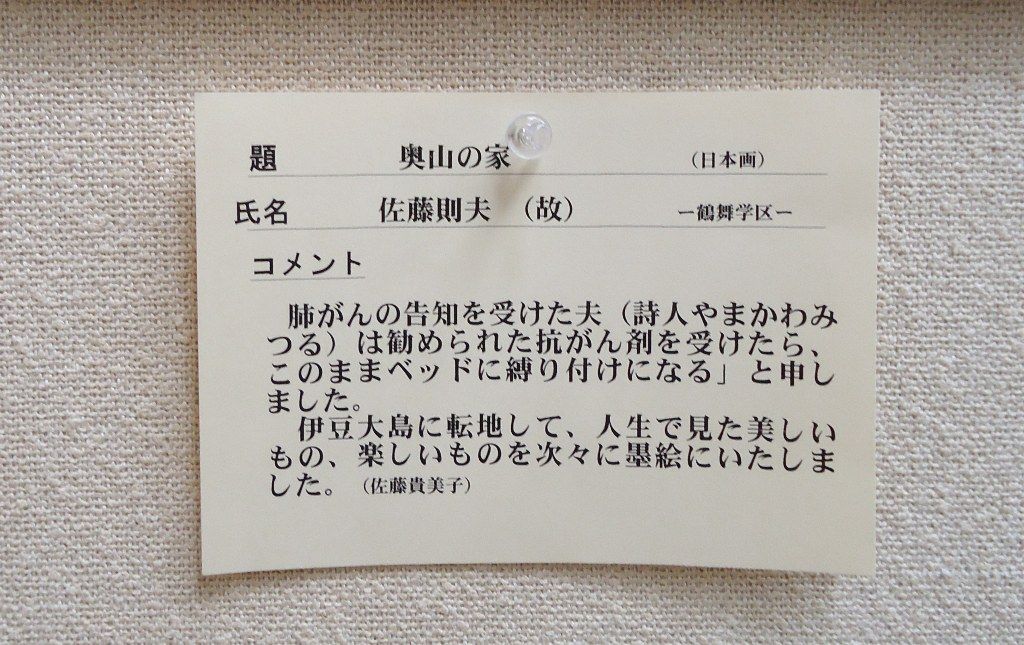 題 奥山の家 (日本画)
氏名 佐藤則夫 (故) ー鶴舞学区ー
コメント
肺がんの告知を受けた夫（詩人やまかわみ
つる）は勧められた抗がん剤を受けたら、
このままベッドに縛り付けになる」と申し
ました。
伊豆大島に転地して、人生で見た美しい
もの、楽しいものを次々に墨絵にいたしま
した。（佐藤貴美子）